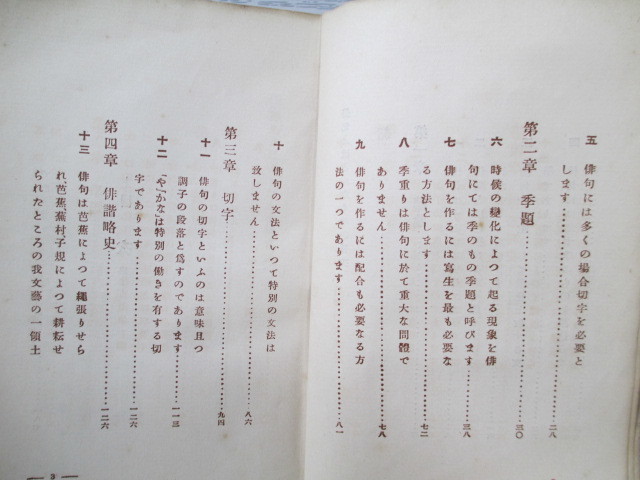 五 俳句には多くの場合切字を必要と
します……………二八
第二章 季題……………三〇
六 時候の變化によつて起る現象を俳
句にては季のもの季題と呼びます……三八
七 俳句を作るには寫生を最も必要な
る方法とします……………七二
八 季重りは俳句に於て重大な問題で
ありません……………七八
九 俳句を作るには配合も必要なる方
法の一つであります……………八一
十 俳句の文法といつて特別の文法は
致しません……………八六
第三章 切字……………九四
十一 俳句の切字といふのは意味且つ
調子の段落と爲すのであります……一一三
十二 「や」「かな」は特別の働きを有する切
字であります……………一二六
第四章 俳諧略史……………一二六
十三 俳句は芭蕉によつて繩張りせら
れ芭蕉蕪村子規によつて耕耘せ
られたところの我文藝の一領土
3